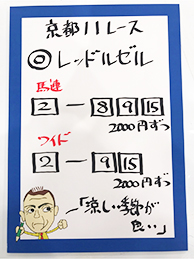 京都11レース
◎レッドルゼル
馬連
2 ― 8 9 15
2000円ずつ
ワイド
2 ― 9 15
2000円ずつ
「涼しい季節が
良い」